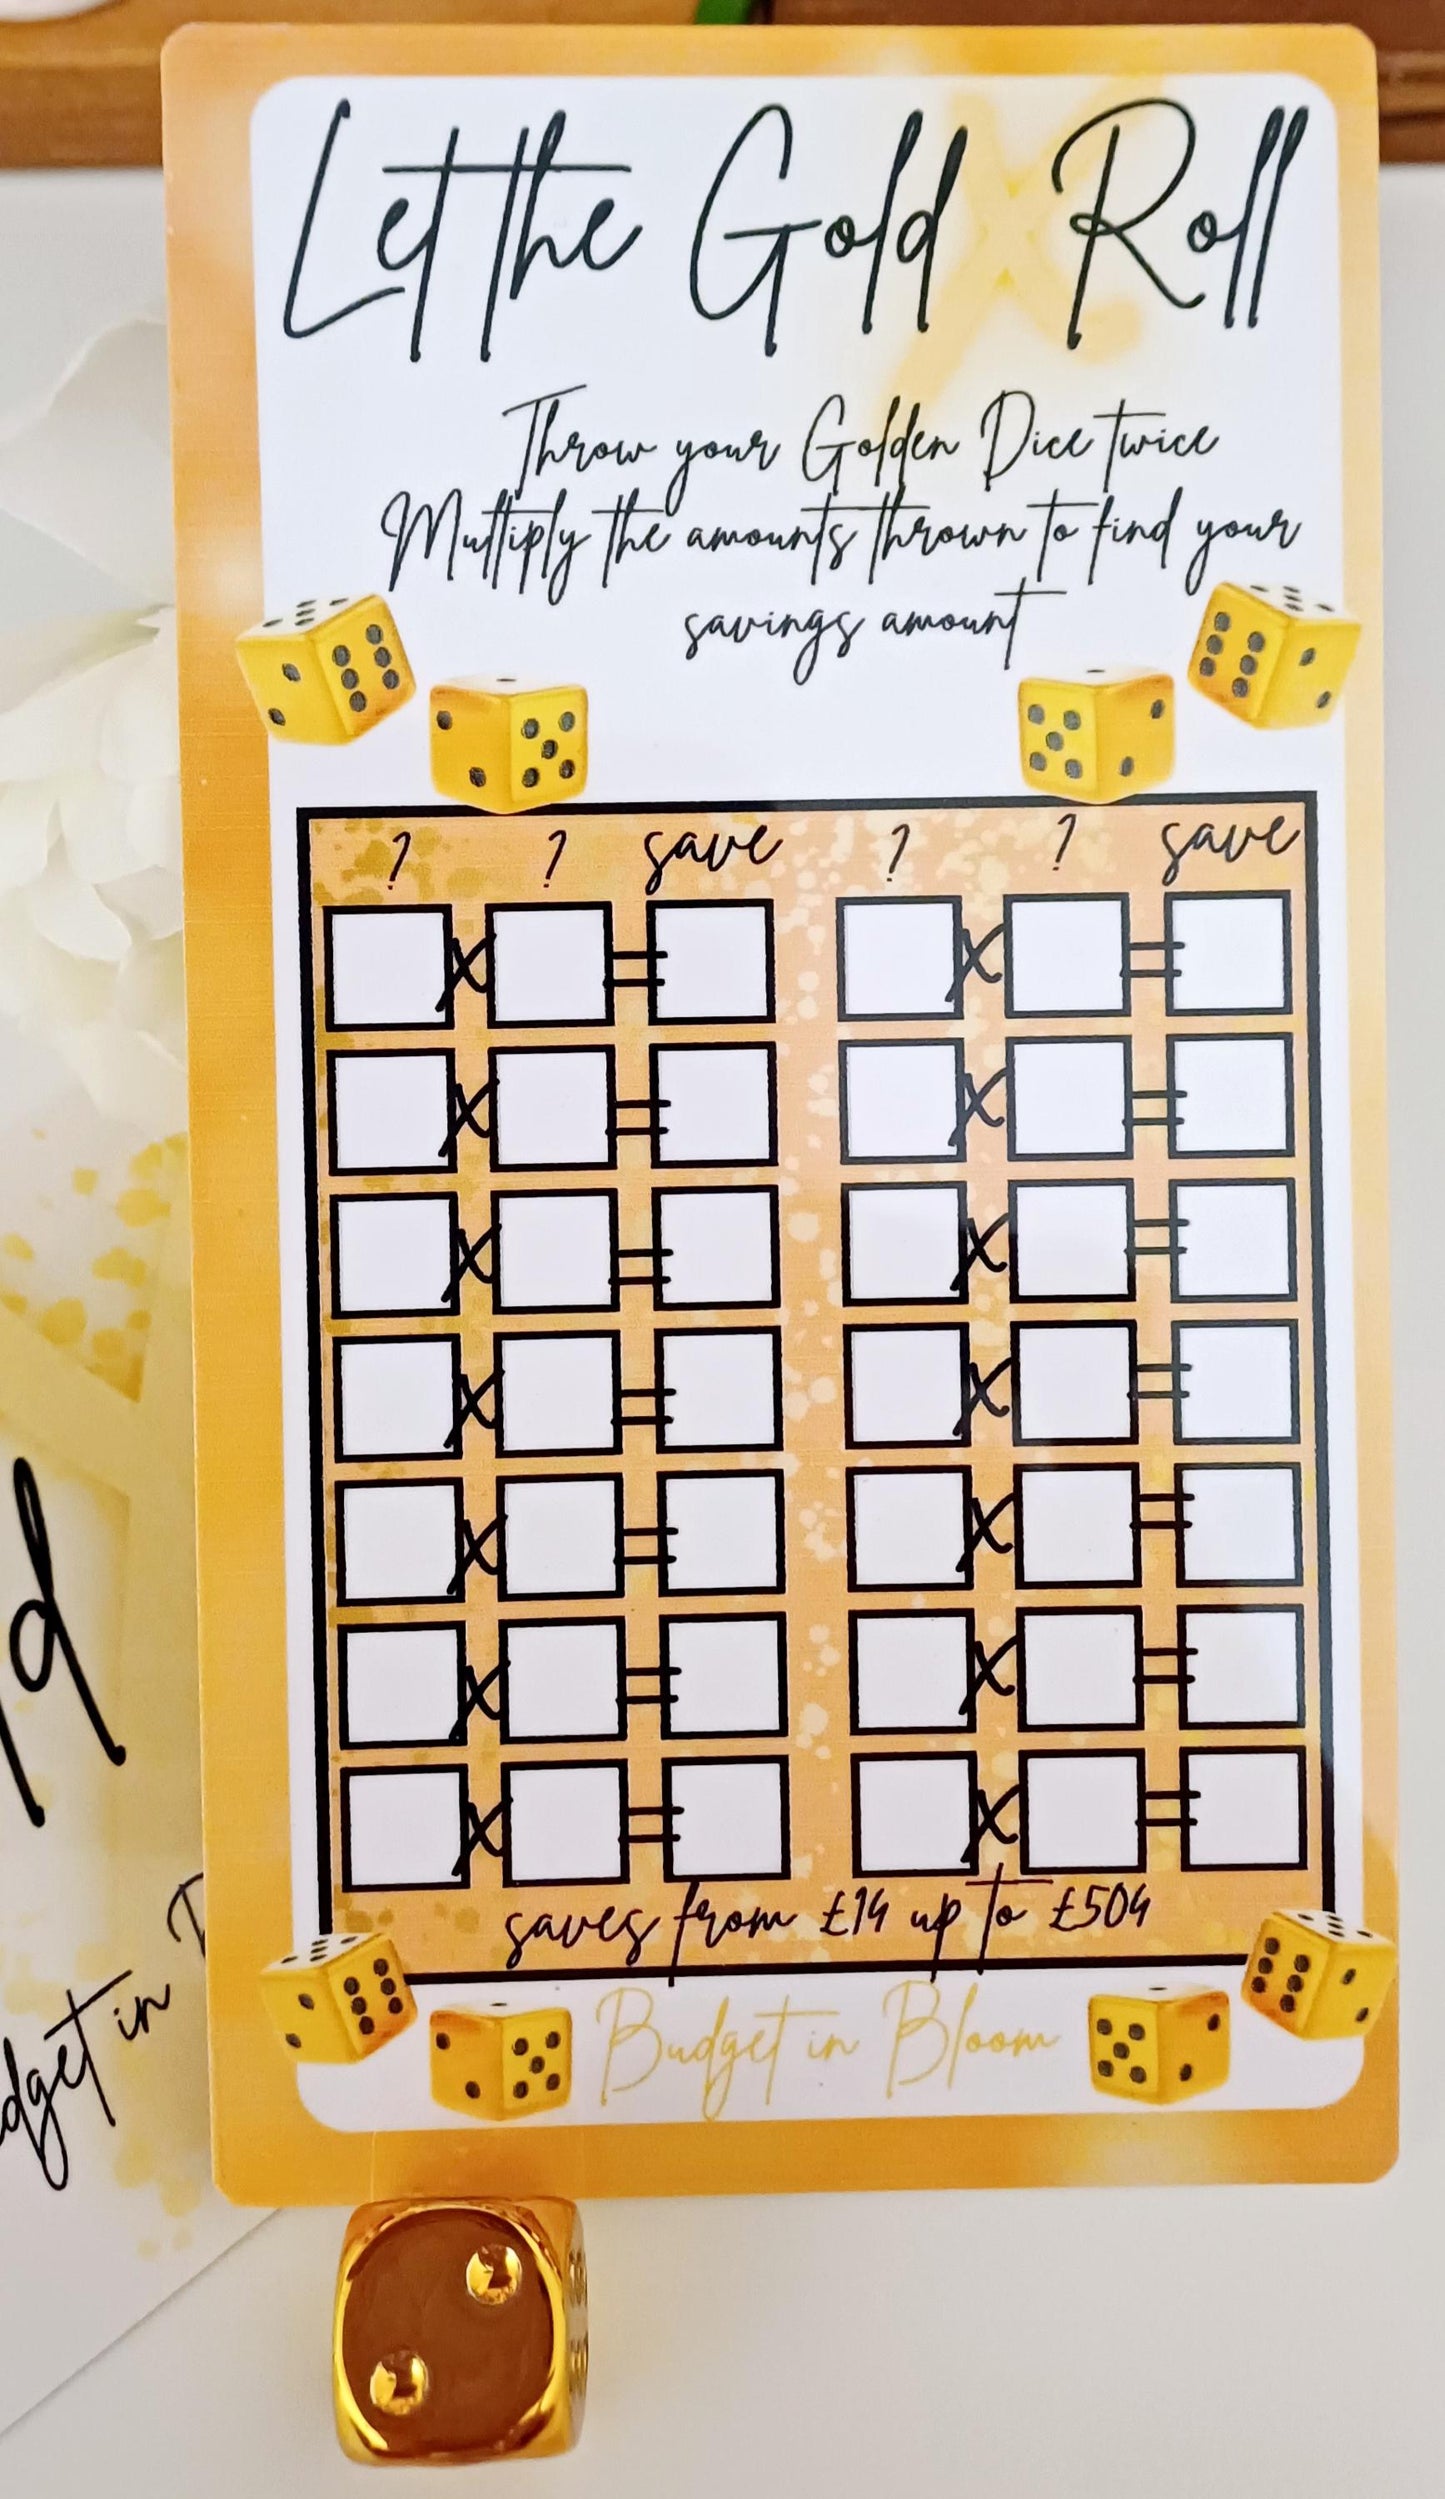 Let the Gold Roll
Throw your Golden Dice twice
Multiply the amounts thrown to find your
savings amount
? ? save ? ? save
X = X =
X = X =
X = X =
X = X =
X = X =
X = X =
X = X =
saves from £14 up to £504
Budget in Bloom
dget in